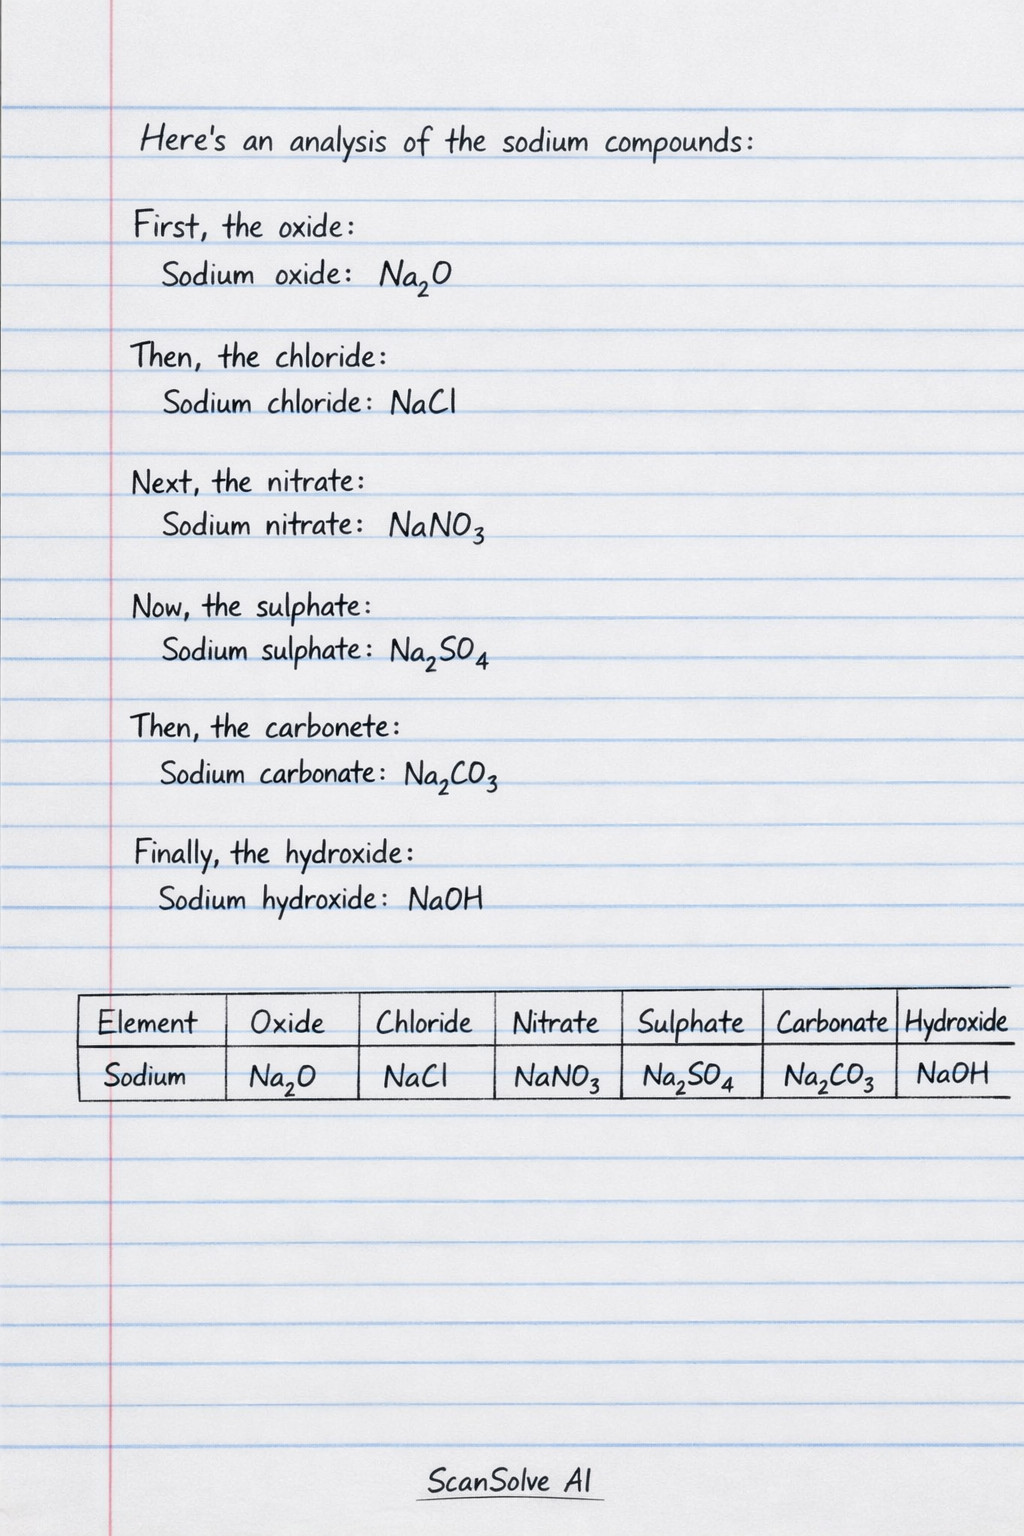 Here's an analysis of the sodium compounds:
First, the oxide:
Sodium oxide: Na₂O
Then, the chloride:
Sodium chloride: NaCl
Next, the nitrate:
Sodium nitrate: NaNO₃
Now, the sulphate:
Sodium sulphate: Na₂SO₄
Then, the carbonete:
Sodium carbonate: Na₂CO₃
Finally, the hydroxide:
Sodium hydroxide: NaOH
Element Oxide Chloride Nitrate Sulphate Carbonate Hydroxide
Sodium Na₂O NaCl NaNO₃ Na₂SO₄ Na₂CO₃ NaOH
ScanSolve AI